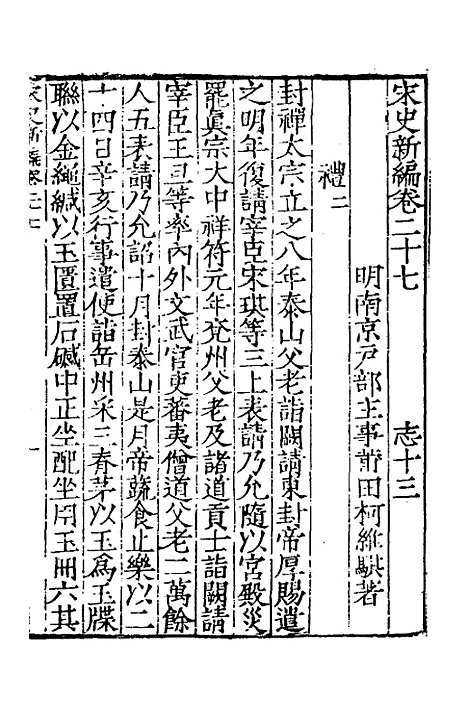 宋史新編卷二十七 志十三
明南京戸部主事莆田柯維騏著
禮二
封禪太宗立之八年泰山父老詣闕請東封帝厚賜遣
之明年復請宰臣宋琪等三上表請乃允隨以宮殿災
罷真宗大中祥符元年兗州父老及諸道貢士詣闕請
宰臣王旦等率內外文武官吏蕃夷僧道父老二萬餘
人五表請乃允詔十月封泰山是月帝蔬食止樂以二
十四日辛亥行事遣使詣岳州采三脊茅以玉爲玉牒
聯以金繩緘以玉匱置石䃭中正坐配坐用玉冊六其
宋史新編卷二十七 一